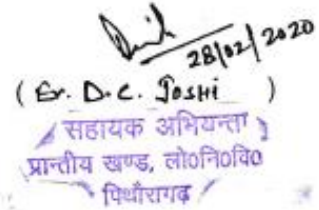 28/02/2020
( Er. D.C. Joshi )
सहायक अभियन्ता
प्रान्तीय खण्ड, लो०नि०वि०
पिथौरागढ़